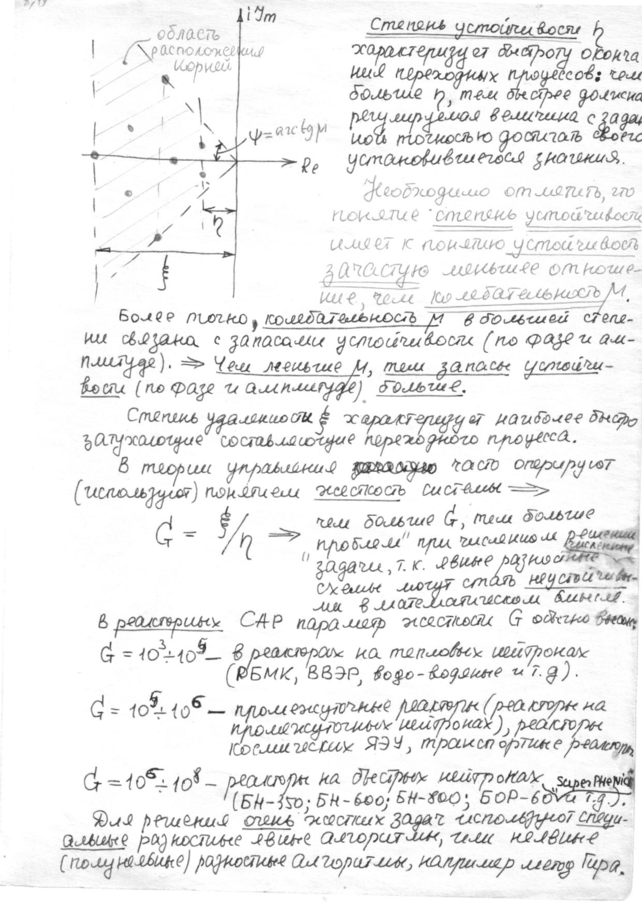 iJm
область
расположения
корней
ψ=arctgμ
Re
η
ξ
Степень устойчивости η
характеризует быстроту оконча
ния переходных процессов: чем
больше η, тем быстрее должна
регулируемая величина с задан
ной точностью достигать своего
установившегося значения.
Необходимо отметить, что
понятие степень устойчивости
имеет к понятию устойчивость
зачастую меньшее отноше-
ние, чем колебательность М.
Более точно, колебательность М в большей степе-
ни связана с запасами устойчивости (по фазе и ам-
плитуде). ⇒ Чем меньше М, тем запасы устойчи-
вости (по фазе и амплитуде) больше.
Степень удаленности ξ характеризует наиболее быстро
затухающие составляющие переходного процесса.
В теории управления часто оперируют
(используют) понятием жесткость системы ⇒
G = ξ/η ⇒ чем больше G, тем больше
"проблем" при численном решении
задачи, т.к. явные разностные
схемы могут стать неустойчивы-
ми в математическом смысле.
В реакторных САР параметр жесткости G обычно высок
G = 10³÷10⁵ – в реакторах на тепловых нейтронах
(РБМК, ВВЭР, водо-водяные и т.д).
G = 10⁵÷10⁶ – промежуточные реакторы (реакторы на
промежуточных нейтронах), реакторы
космических ЯЭУ, транспортные реакторы
G = 10⁶÷10⁸ – реакторы на быстрых нейтронах "SuperPhenix"
(БН-350; БН-600; БН-800; БОР-60 и т.д.).
Для решения очень жестких задач используют специ-
альные разностные явные алгоритмы, или неявные
(полунеявные) разностные алгоритмы, например метод Гира.